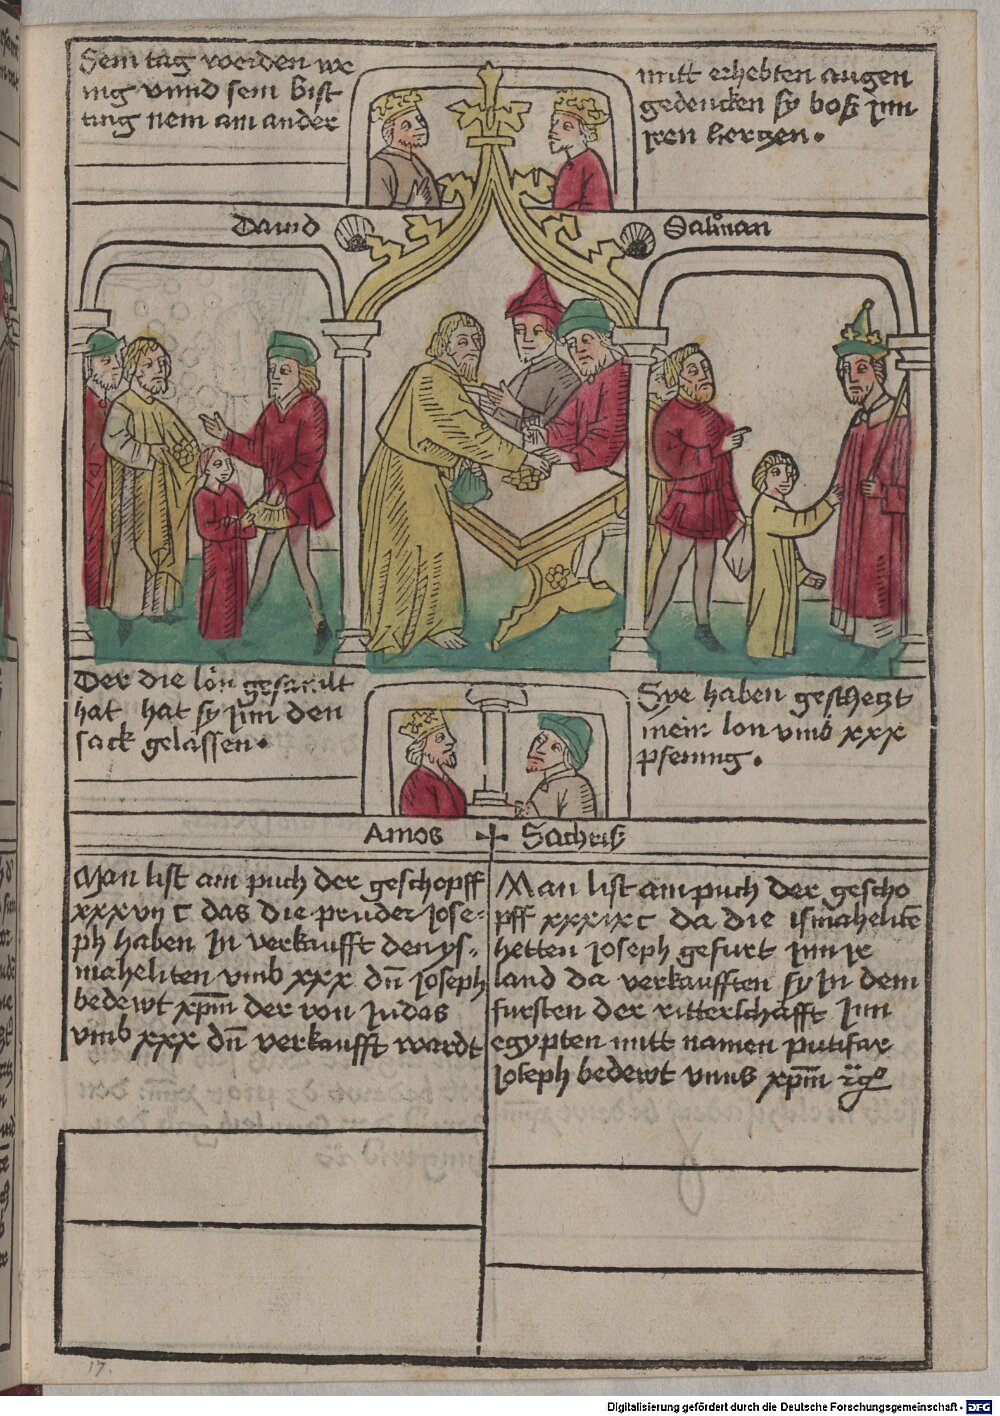 Sein tag werden we
nig vnnd sein bist
tung nem ain ander
mitt erhebten augen
gedencken sy boß jnn
jren hertzen.
Dauid
Salman
Der die lön gesamlt
hat hat sy jnn den
sack gelassen.
Sye haben geschetzt
mein lon vmb xxx
pfening.
Amos
Sacheriß
Man list am puch der geschopff
xxxvij c das die prüder Jose-
ph haben jn verkaufft den ys-
maheliten vmb xxx dn̄ joseph
bedewt xp̄m der von judas
vmb xxx dn̄ verkaufft wardt
Man list am puch der gescho
pff xxxix c da die ismahelitē
hetten joseph gefurt jnn jr
land da verkaufften sy jn dem
fursten der ritterschafft jnn
egypten mitt namen putifar
joseph bedewt vnns xp̄m
17
Digitalisierung gefördert durch die Deutsche Forschungsgemeinschaft - DFG